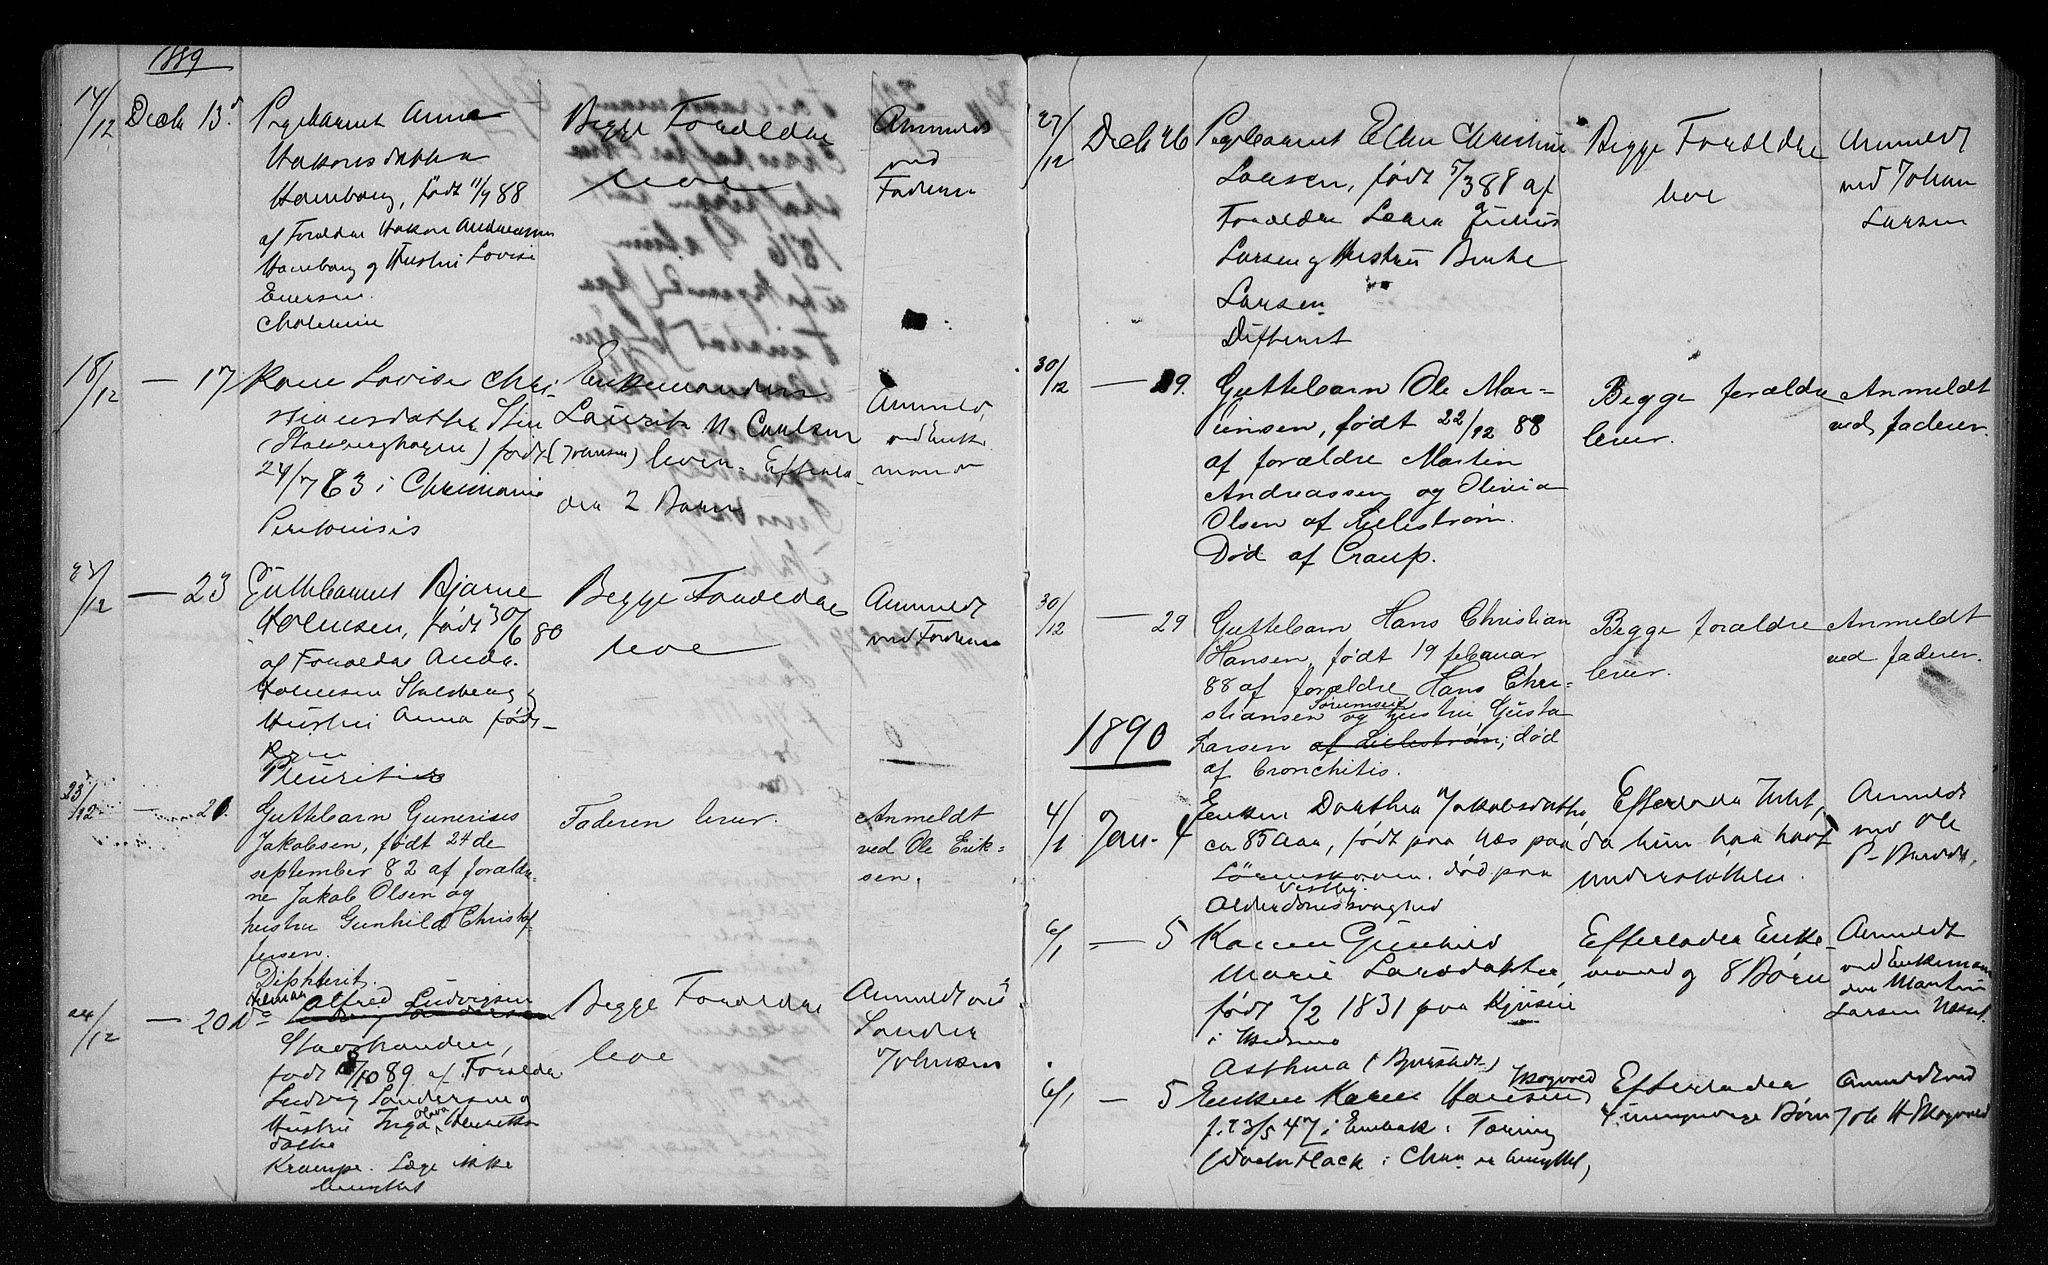 1889
14/12 Decb 13. Pigebarnet Anna
Hakonsdatter
Hamborg, født 11/9 88
af Forældre Hakon Andreassen
Hamborg og Hustru Lovise
Eversen.
Begge Forældre
leve
Anmeldt
ved
Faderen
18/12 — 17 Kone Lovise Chri-
stiansdatter
(Stalsberghagen) født
24/7 63 i Christiania
Peritonisis
Enkemanden
Laurits M Paulsen
(Johnsen) lever. Efterla-
der 2 Børn
Anmeldt
ved Enke
manden
23/12 — 23 Guttebarnet Bjarne
Holmsen, født 30/6 80
af Forældre Andr.
Holmsen Stalsberg og
Hustru Anna født
Pleuritis
Begge Forældre
leve
Anmeldt
ved Faderen
23/12 — 21. Guttebarn Gunerius
Jakobsen, født 24de
september 82 af forældre-
ne Jakob Olsen og
hustru Gunhild Christof-
fersen.
Diphterit.
Faderen lever.
Anmeldt
ved Ole Erik-
sen.
24/12 — 20 Do Helmar Alfred Ludvigsen
født 8/10 89 af Forældre
Ludvig Sandersen og
Hustru Inga Olava Henriks
datter
Krampe. Læge ikke
benyttet
Begge Forældre
leve
Anmeldt ved
Sander
Johnsen
27/12 Decb 26 Pigebarnet Ellen Christine
Larsen, født 5/3 88 af
Forældre Julius
Larsen og Hustru Berthe
Larsen
Difterit
Begge Forældre
leve
Anmeldt
ved Johan
Larsen
30/12 — 29. Guttebarn Ole Mar-
tinsen, født 22/12 88
af forældre Martin
Andreassen og Olivia
Olsen af Lillestrøm.
Død af Croup.
Begge forældre
lever.
Anmeldt
ved faderen.
30/12 — 29 Guttebarn Hans Christian
Hansen, født 19 februar
88 af forældre Hans Chri-
stiansen Sørumsen og Hustru Gusta
Larsen af Lillestrøm; død
af bronchitis.
Begge forældre
lever.
Anmeldt
ved faderen.
1890
4/1 Jan. 4 Enken Dorthea Jakobsdatter,
ca 85 Aar, født paa Næs paa
død paa
Vestby
Alderdomssvaghed
Efterlader Intet,
da hun har havt
understøttelse.
Anmeldt
ved Ole
P.
6/1 — 5 Karen Gunhild
Marie Larsdatter,
født 2/2 1831 paa
Asthma (Bjerstadt)
Efterlader Enke-
mand og 8 Børn
Anmeldt
ved Enkeman
den Martin
Larsen Næsset.
6/1 — 5 Enken Karen Hansen Skogvold
f. 23/5 47 i Enebak.
(Doctor Hack i Chra er benyttet,
Efterlader
4 umyndige Børn
Anmeldt ved
Joh H Skogvold